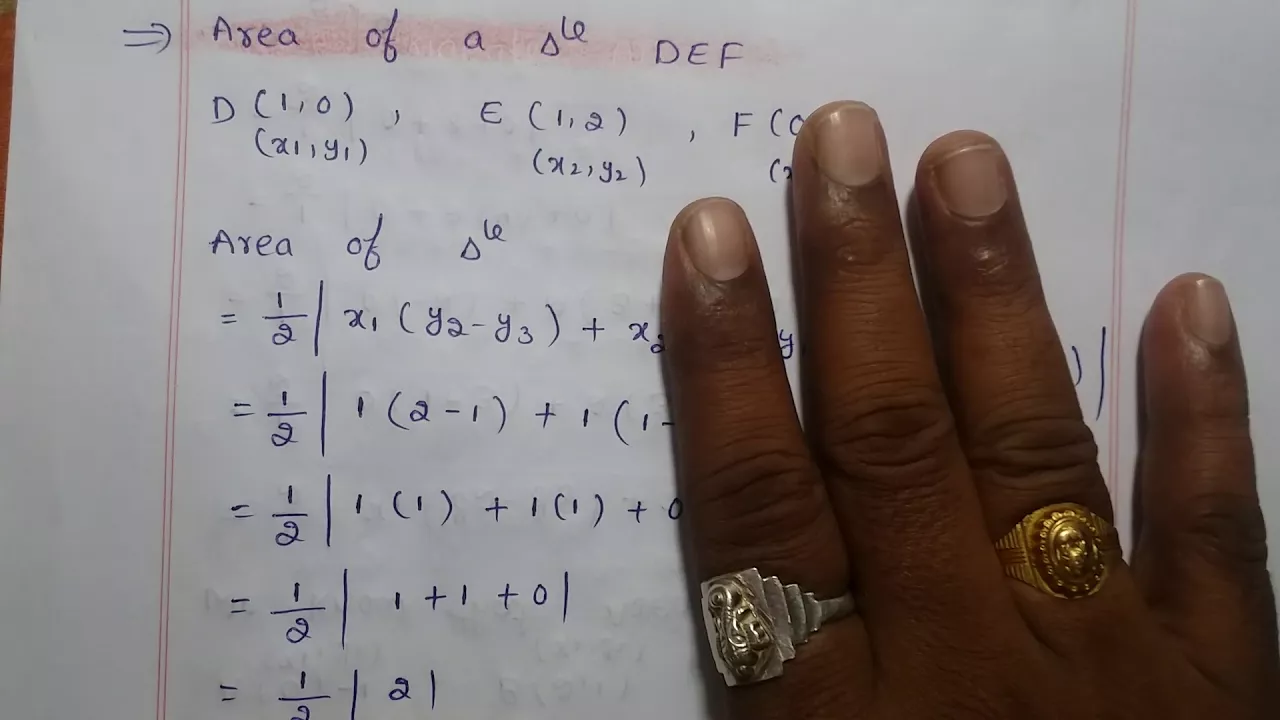 ⇒ Area of a Δle DEF
D (1,0) , E (1,2) , F (0
(x1,y1) (x2,y2) (x
Area of Δle
= 1/2 | x1 (y2-y3) + x2 y )|
= 1/2 | 1 (2-1) + 1 (1-
= 1/2 | 1 (1) + 1(1) + 0
= 1/2 | 1 + 1 + 0|
= 1/2 | 2|